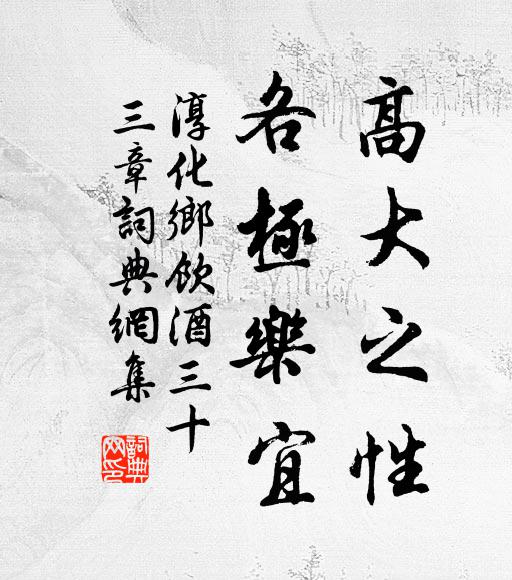 高大之性
各極樂宜
淳化鄉飲酒三十
三章詞典網集
詞典网印